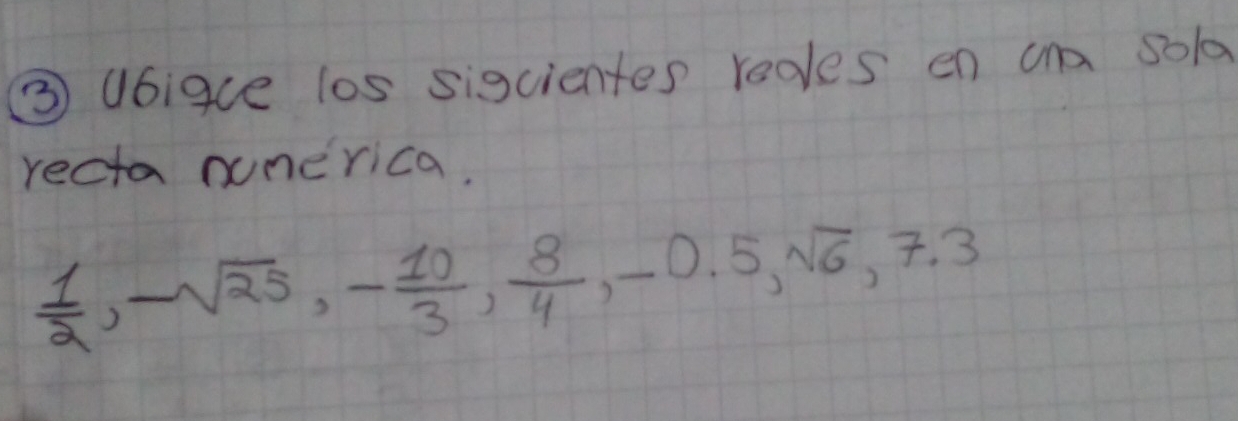 ③ Ubique los siguientes reales en una sola
recta numérica.
1/2, -√25, -10/3, 8/4, -0.5, √6, 7.3